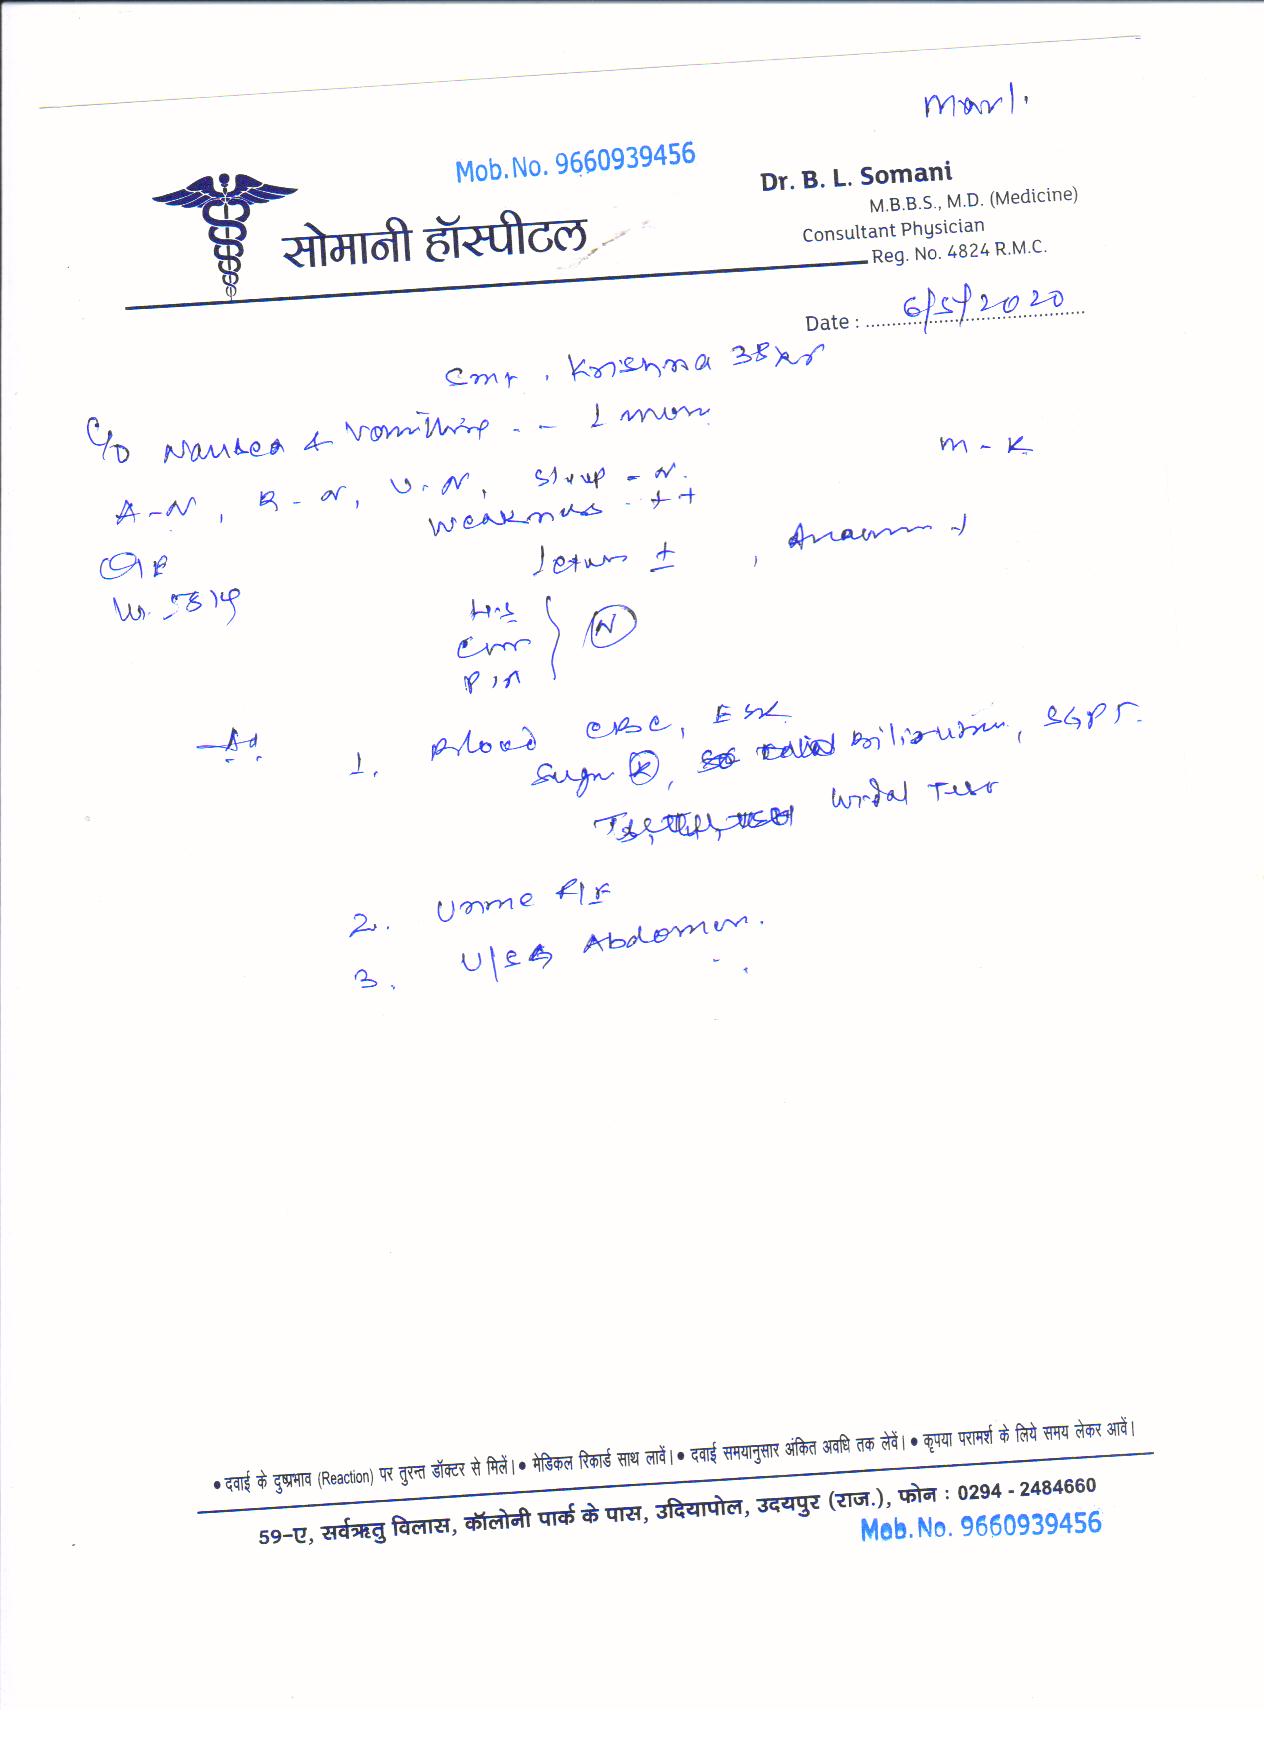 Mob. No. 9660939456
सोमानी हॉस्पीटल
Dr. B. L. Somani
M.B.B.S., M.D. (Medicine)
Consultant Physician
Reg. No. 4824 R.M.C.
Date : 6/5/2020
Krishna 38 yr
C/o Nausea & Vomitting -- 1
M - K
A-N, B-N, U-N, Sleep - N.
Weakness - ++
O/E
±
H.S
N
Ad.
1. Blood CBC, ESR
Sugar R, Bilirubin, SGPT.
Widal Test
2. Urine R/E
3. Abdomen.
• दवाई के दुष्प्रभाव (Reaction) पर तुरन्त डॉक्टर से मिलें। • मेडिकल रिकार्ड साथ लावें। • दवाई समयानुसार अंकित अवधि तक लेवें। • कृपया परामर्श के लिये समय लेकर आवें।
59-ए, सर्वऋतु विलास, कॉलोनी पार्क के पास, उदियापोल, उदयपुर (राज.), फोन : 0294 - 2484660
Mob. No. 9660939456